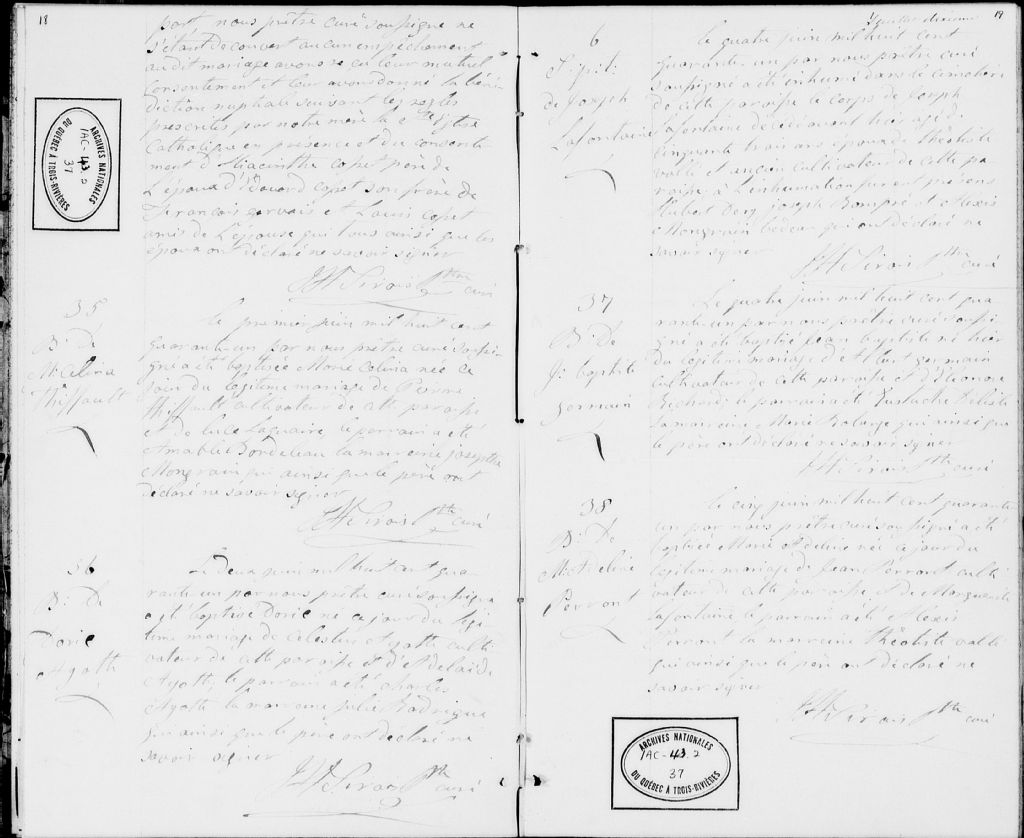 18
part nous prêtre curé soussigné ne
s'étant découvert aucun empêchement
au dit mariage avons reçu leur mutuel
consentement et leur avons donné la béné
diction nuptiale suivant les regles
prescrites par notre mere la Ste Eglise
Catholique en présence et du consente
ment d'Hiacinthe copet père de
L'époux d'édouard copet son frere de
François gervais et Louis copet
amis de L'épouse qui tous ainsi que les
époux ont déclaré ne savoir signer
JH Sirois Ptre curé
ARCHIVES NATIONALES
1AC-43.2
37
DU QUÉBEC À TROIS-RIVIÈRES
35
B: de
M: Celina
Thiffault
le premier juin mil huit cent
quarante un par nous prêtre curé soussi
gné a été baptisée Marie Celina née ce
jour du légitime mariage de Pierre
Thiffault cultivateur de cette paroisse
et de Luce Laguaire, le parrain a été
Amable Bordeleau la marraine josephte
Mongrain qui ainsi que le père ont
déclaré ne savoir signer
JH Sirois Ptre curé
36
B: De
Doric
Ayotte
Le deux juin mil huit cent qua
rante un par nous prêtre curé soussigné
a été baptisé Doric né ce jour du légi
time mariage de Celestin Ayotte culti
vateur de cette paroisse et d'Adelaide
Ayotte, le parrain a été charles
Ayotte la marraine Julie Rodrigue
qui ainsi que le père ont déclaré ne
savoir signer
JH Sirois Ptre curé
19
6
S: p:t:
de Joseph
Lafontaine
le quatre juin mil huit cent
quarante un par nous prêtre curé
soussigné a été inhumé dans le cimetiere
de cette paroisse le corps de Joseph
Lafontaine décédé avant hier agé de
cinquante trois ans epoux de Théotiste
vallé et ancien cultivateur de cette pa
roisse à L'enhumation furent présens
Hubert Dery joseph Bompré et Alexis
Mongrain bedeau qui ont déclaré ne
savoir signer
JH Sirois Ptre curé
37
B: de
J: baptiste
germain
Le quatre juin mil huit cent qua
rante un par nous prêtre curé soussi
gné a été baptisé Jean Baptiste né hier
du légitime mariage d'Albert germain
cultivateur de cette paroisse et d'Eleonore
Bechard; le parrain a été Eustache Delisle
la marraine Marie qui ainsi que
le père ont déclaré ne savoir signer
JH Sirois Ptre curé
38
B: De
M: Adeline
Perront
le cinq juin mil huit cent quarante
un par nous prêtre curé soussigné a été
baptisée Marie Adeline née ce jour du
légitime mariage de Jean Perront culti
vateur de cette paroisse et de Marguerite
Lafontaine le parrain a été Alexis
Perront la marraine Théotiste vallé
qui ainsi que le père ont déclaré ne
savoir signer
JH Sirois Ptre curé
ARCHIVES NATIONALES
1AC-43.2
37
DU QUÉBEC À TROIS-RIVIÈRES